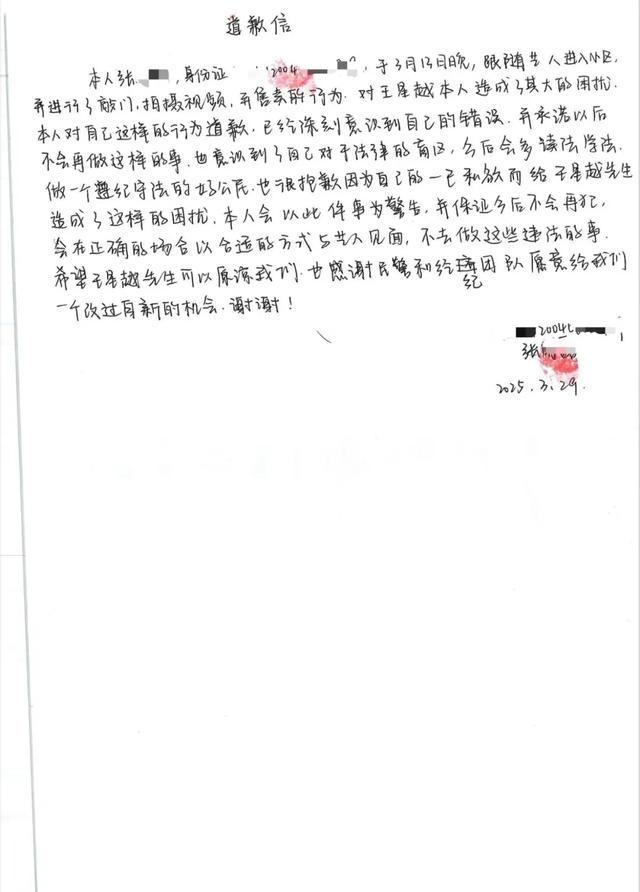 道歉信
本人张 ，身份证 2004 ，于3月13日晚，跟随艺人进入小区，
并进行了敲门，拍摄视频，并售卖的行为．对王星越本人造成了莫大的困扰．
本人对自己这样的行为道歉，已经深刻意识到自己的错误．并承诺以后
不会再做这样的事．也意识到了自己对于法律的盲区，今后会多读法学法．
做一个遵纪守法的好公民．也很抱歉因为自己的一己私欲而给王星越先生
造成了这样的困扰．本人会以此件事为警告，并保证今后不会再犯，
会在正确的场合以合适的方式与艺人见面，不去做这些违法的事．
希望王星越先生可以原谅我们．也感谢民警和经纪团队愿意给我们
一个改过自新的机会．谢谢！
2004
张
2025.3.29